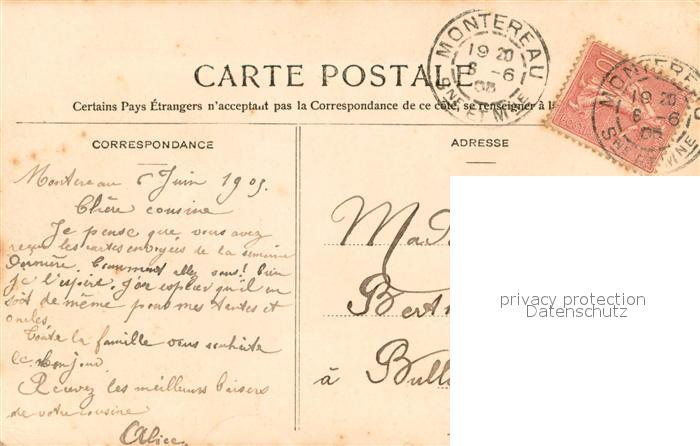 CARTE POSTALE
Certains Pays Étrangers n'acceptent pas la Correspondance de ce côté, se renseigner à la
CORRESPONDANCE
Montereau 6 Juin 1905.
Chère cousine
Je pense que vous avez
reçu les cartes envoyées de la semaine
dernière. Comment allez vous! bien
je l'espère. J'ose espérer qu'il en
soit de même pour mes tantes et
oncles
Toute la famille vous souhaite
le bonjour.
Recevez les meilleurs baisers
de votre cousine
Alice.
ADRESSE
Ma
Bert
à Bull
MONTEREAU
19 20
8 -6
05
SNE ET MNE
MONTERE
19 20
8 -6
05
SNE ET MNE
privacy protection
Datenschutz